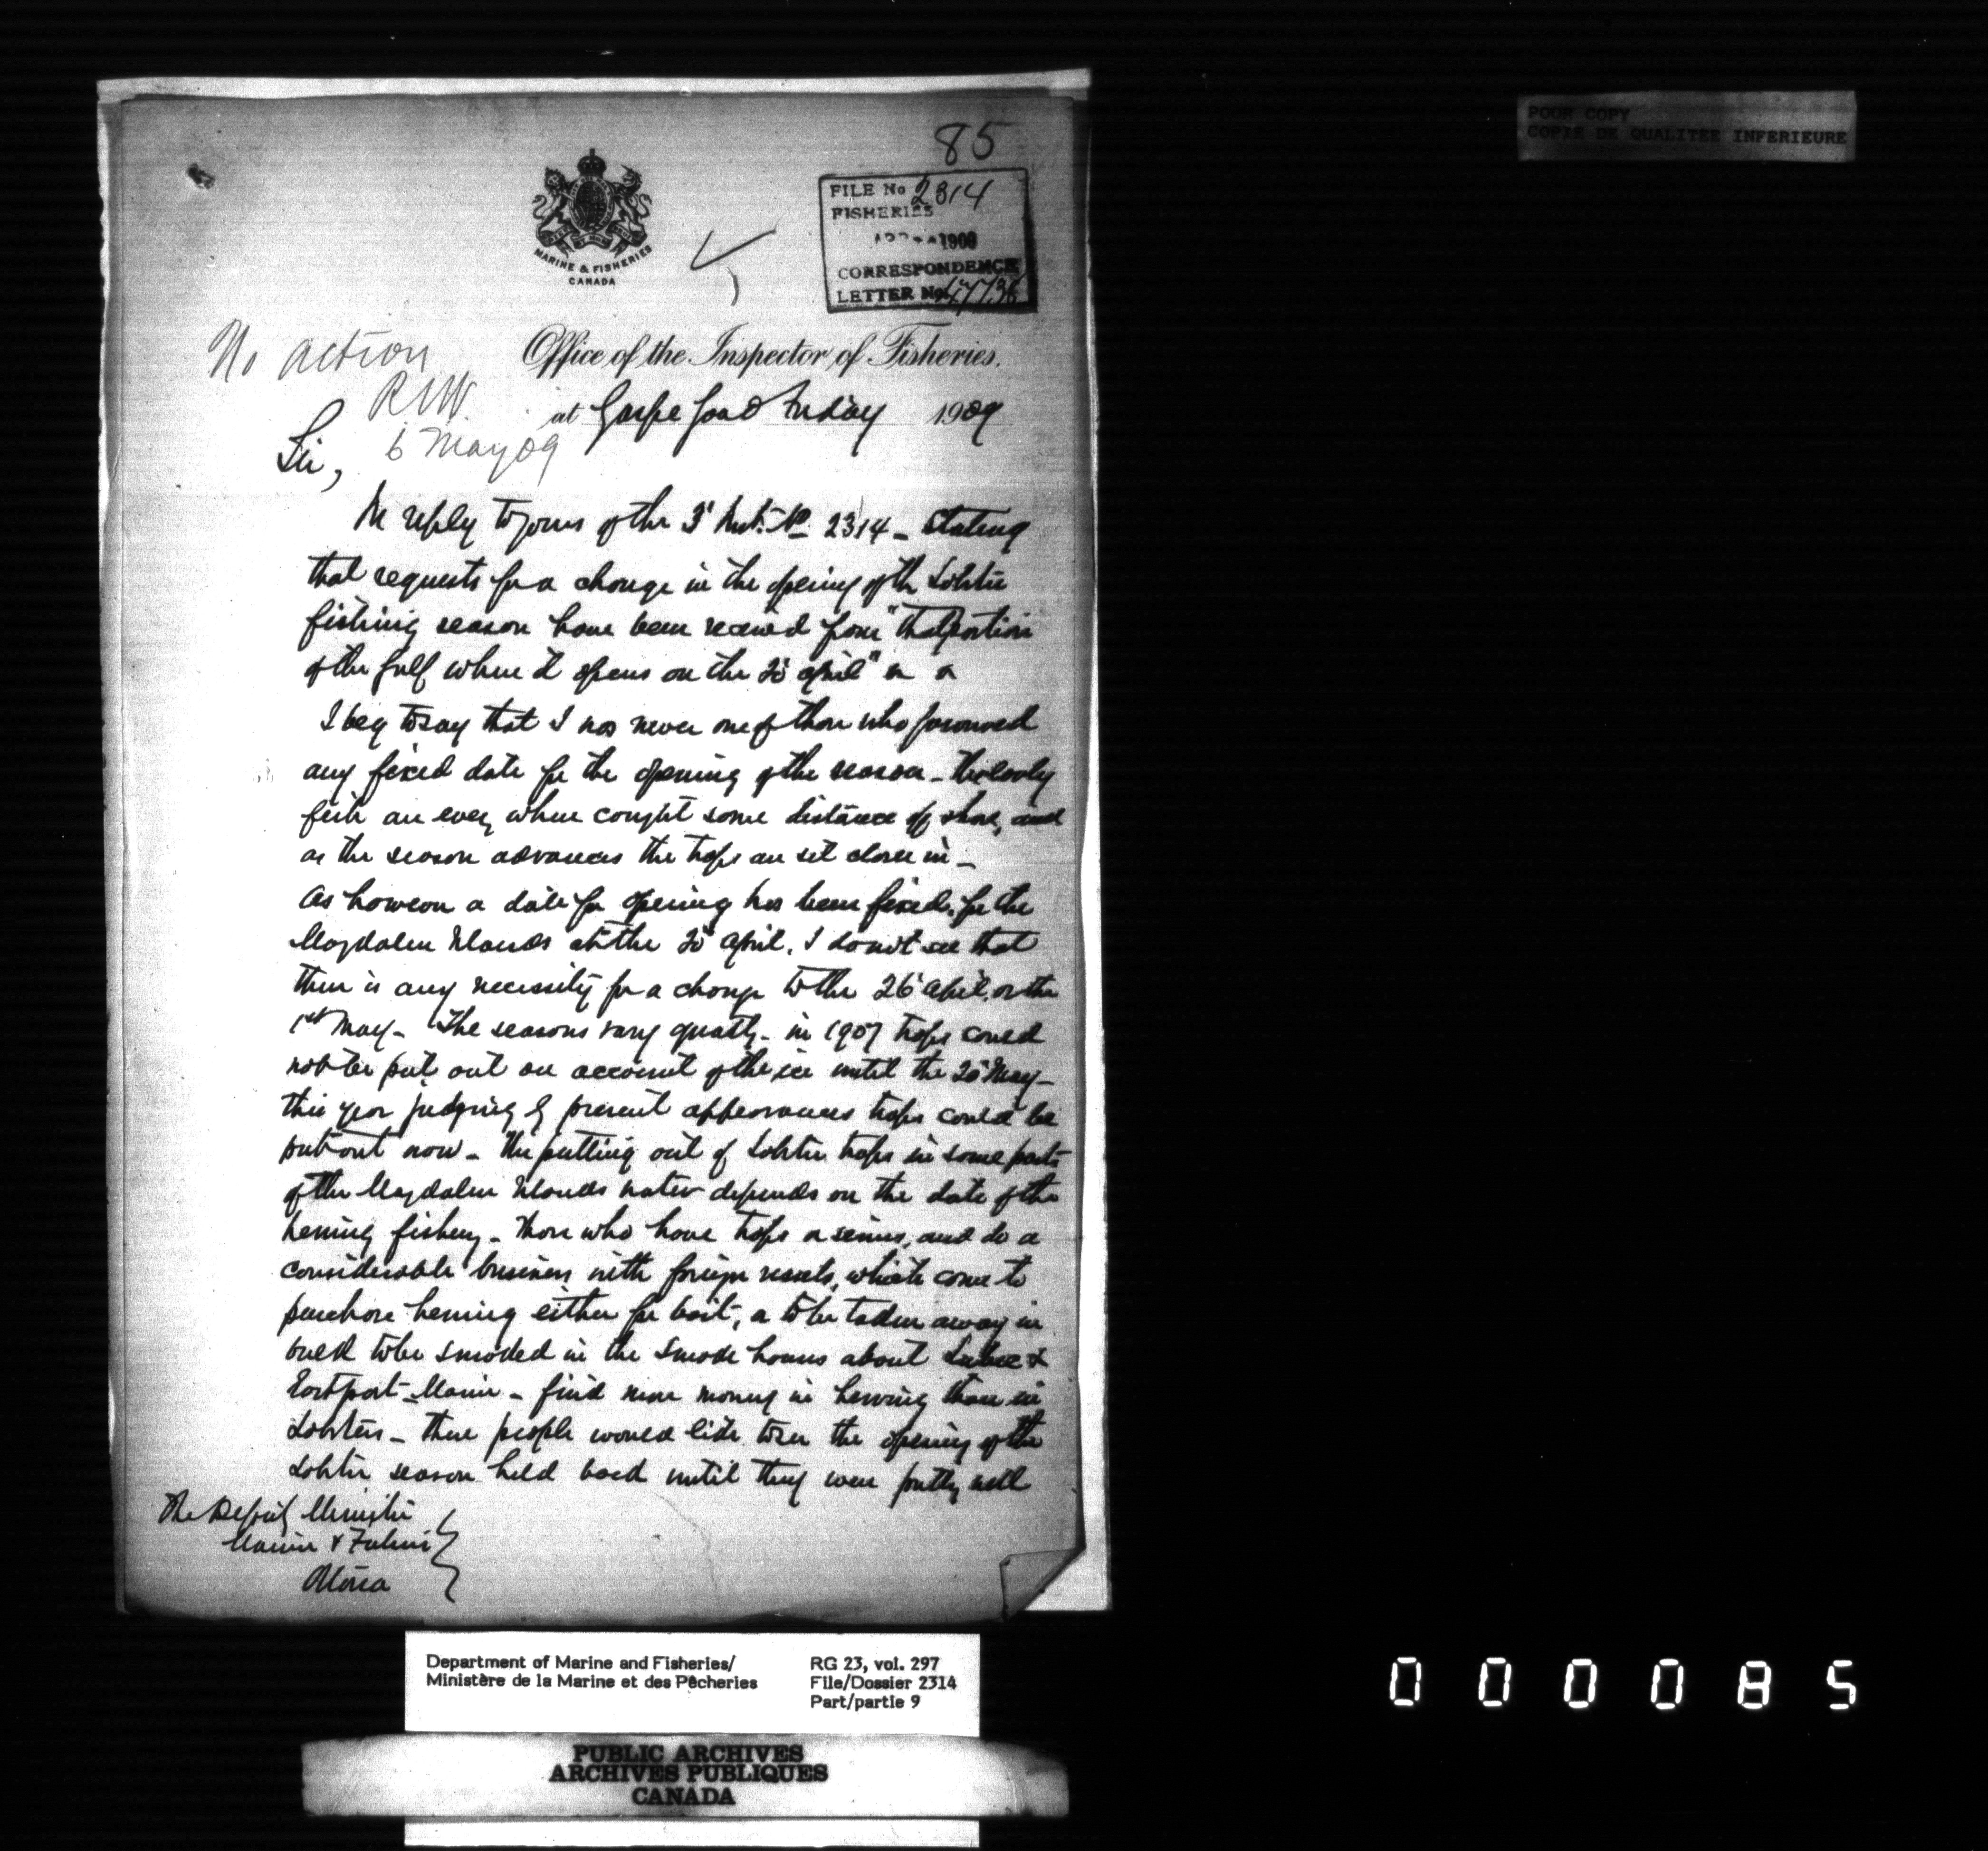 85
FILE No 2314
FISHERIES
1909
CORRESPONDENCE
LETTER No.
MARINE & FISHERIES
CANADA
No action
Office of the Inspector of Fisheries.
RNV.
at Gaspe Good Friday 1909
6 May 09
Sir,
In reply to yours of the 3d Inst. No 2314 - stating
that requests for a change in the opening of the Lobster
fishing season have been received from "that portion
of the Gulf where it opens on the 20 april"
I beg to say that I was never one of those who favoured
any fixed date for the opening of the season - the early
fish are every where caught some distance off shore, and
as the season advances the traps are set closer in -
As however a date for opening has been fixed, for the
Magdalen Islands at the 20 April, I do not see that
there is any necessity for a change to the 26 april, or the
1st May - The seasons vary greatly - in 1907 traps could
not be put out on account of the ice until the 20 May -
this year judging by present appearances traps could be
put out now - The putting out of Lobster traps in some parts
of the Magdalen Islands rather depends on the date of the
herring fishery - Those who have traps or seines, and do a
considerable business with foreign vessels, which come to
purchase herring either for bait, or to be taken away in
bulk to be smoked in the smoke houses about Lubec &
Eastport - Maine - find more money in herring than in
Lobsters - these people would like to see the opening of the
Lobster season held back until they were pretty well
The Deputy Minister
Marine & Fisheries
Ottawa
POOR COPY
COPIE DE QUALITEE INFERIEURE
Department of Marine and Fisheries/
Ministère de la Marine et des Pêcheries
RG 23, vol. 297
File/Dossier 2314
Part/partie 9
PUBLIC ARCHIVES
ARCHIVES PUBLIQUES
CANADA
000085